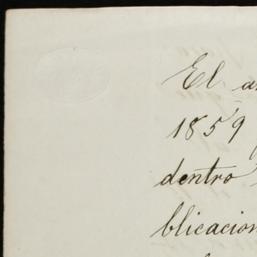 El
1859
dentro
blicacion